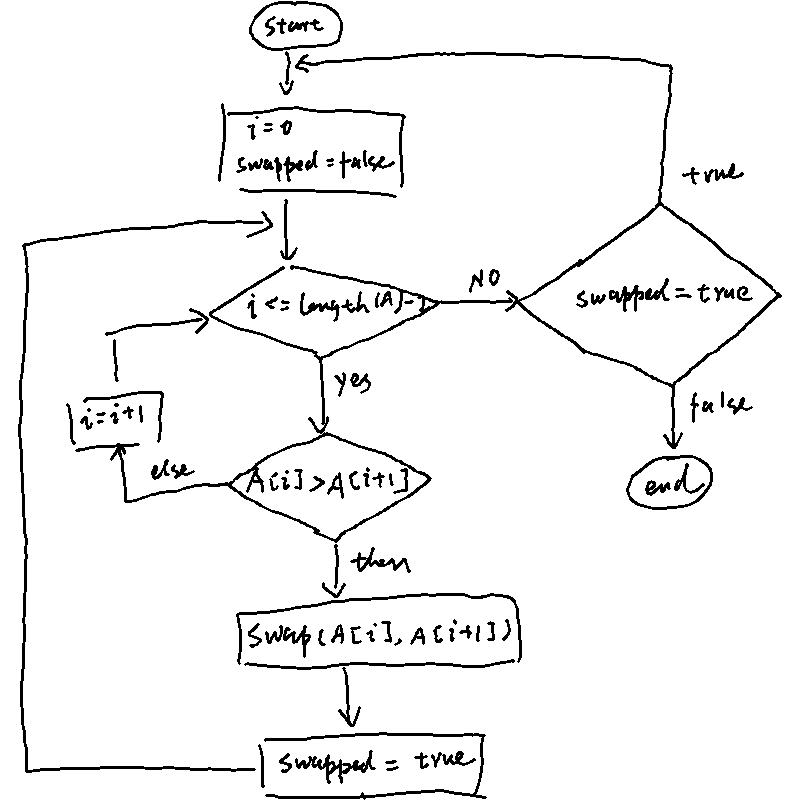 start
i = 0
swapped = false
i <= length(A)-1
NO
swapped = true
true
yes
i=i+1
false
else
A[i] > A[i+1]
end
then
Swap(A[i], A[i+1])
swapped = true